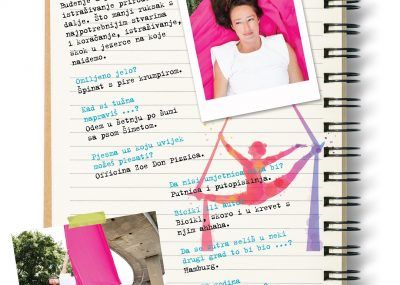 istraživanje
dalje. Što manji ruksak s
najpotrebnijim stvarima
i koračanje, istraživanje,
skok u jezerce na koje
naiđemo.
Omiljeno jelo?
Špinat s pire krumpirom.
Kad si tužna
napraviš ...?
Odem u šetnju po šumi
sa psom Šimetom.
Pjesma uz koju uvijek
možeš plesati?
Officina Zoe Don Pizzica.
Da nisi umjetnica bi?
Putnica i putopiskinja.
Bicikl ili auto?
Bicikl, skoro i u krevet s
njim ahhaha.
Da se sutra seliš u neki
drugi grad to bi bio ...?
Hamburg.
godina